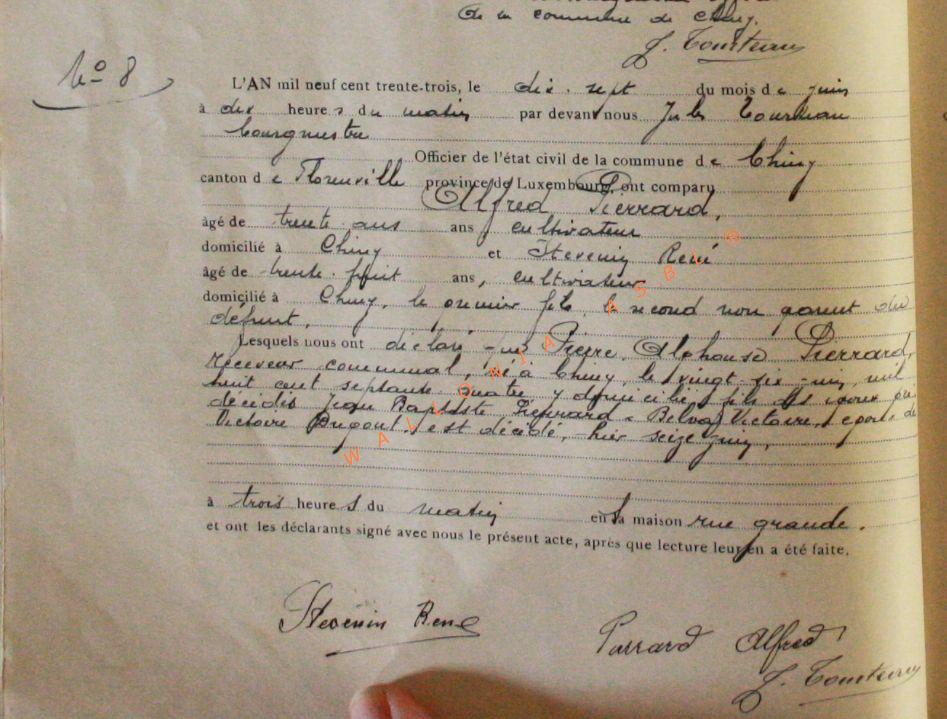 de la commune de Chiny.
J. Tourteau
No 8
L'AN mil neuf cent trente-trois, le dix-sept du mois de juin
à dix heures du matin par devant nous Jules Tourteau
bourgmestre
Officier de l'état civil de la commune de Chiny
canton de Florenville province de Luxembourg, ont comparu
Alfred Pierrard,
âgé de trente ans ans, cultivateur
domicilié à Chiny et Stevenin René
âgé de trente-huit ans, cultivateur
domicilié à Chiny, le premier fils, le second non parent du
défunt.
Lesquels nous ont déclaré que Pierre Alphonse Pierrard,
receveur communal, né à Chiny, le vingt six mai mil
huit cent septante quatre, y domicilié, fils des époux
décédés Jean Baptiste Pierrard - Belva Victoire, époux de
Victoire Dugout, est décédé, hier seize juin,
à trois heures du matin en sa maison rue grande.
et ont les déclarants signé avec nous le présent acte, après que lecture leur en a été faite.
Stevenin René
Pierrard Alfred
J. Tourteau
WALLONIA ASBL ©